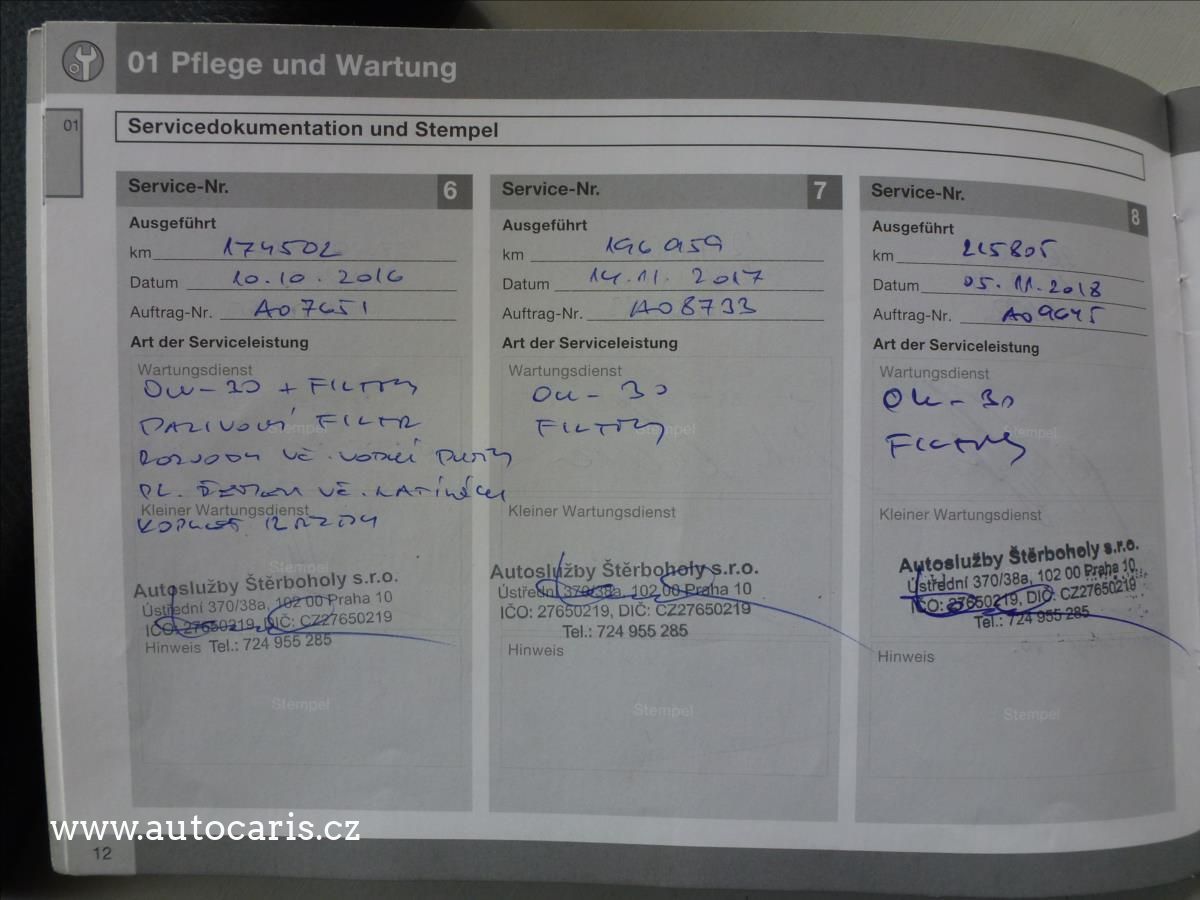 01 Pflege und Wartung
01
Servicedokumentation und Stempel
Service-Nr. 6
Ausgeführt
km 174502
Datum 10.10.2016
Auftrag-Nr. A07651
Art der Serviceleistung
Wartungsdienst
0W-30 + FILTRY
PALIVOVÝ FILTR
Stempel
ROZVODY VČ. VODNÍ PUMPY
Kleiner Wartungsdienst
Stempel
Autoslužby Štěrboholy s.r.o.
Ústřední 370/38a, 102 00 Praha 10
IČO: 27650219, DIČ: CZ27650219
Hinweis Tel.: 724 955 285
Stempel
Service-Nr. 7
Ausgeführt
km 196959
Datum 14.11.2017
Auftrag-Nr. A08733
Art der Serviceleistung
Wartungsdienst
0W-30
FILTRY
Stempel
Kleiner Wartungsdienst
Autoslužby Štěrboholy s.r.o.
Ústřední 370/38a, 102 00 Praha 10
IČO: 27650219, DIČ: CZ27650219
Tel.: 724 955 285
Hinweis
Stempel
Service-Nr. 8
Ausgeführt
km 215805
Datum 05.11.2018
Auftrag-Nr. A09645
Art der Serviceleistung
Wartungsdienst
0W-30
FILTRY
Stempel
Kleiner Wartungsdienst
Autoslužby Štěrboholy s.r.o.
Ústřední 370/38a, 102 00 Praha 10
IČO: 27650219, DIČ: CZ27650219
Tel.: 724 955 285
Hinweis
Stempel
www.autocaris.cz
12